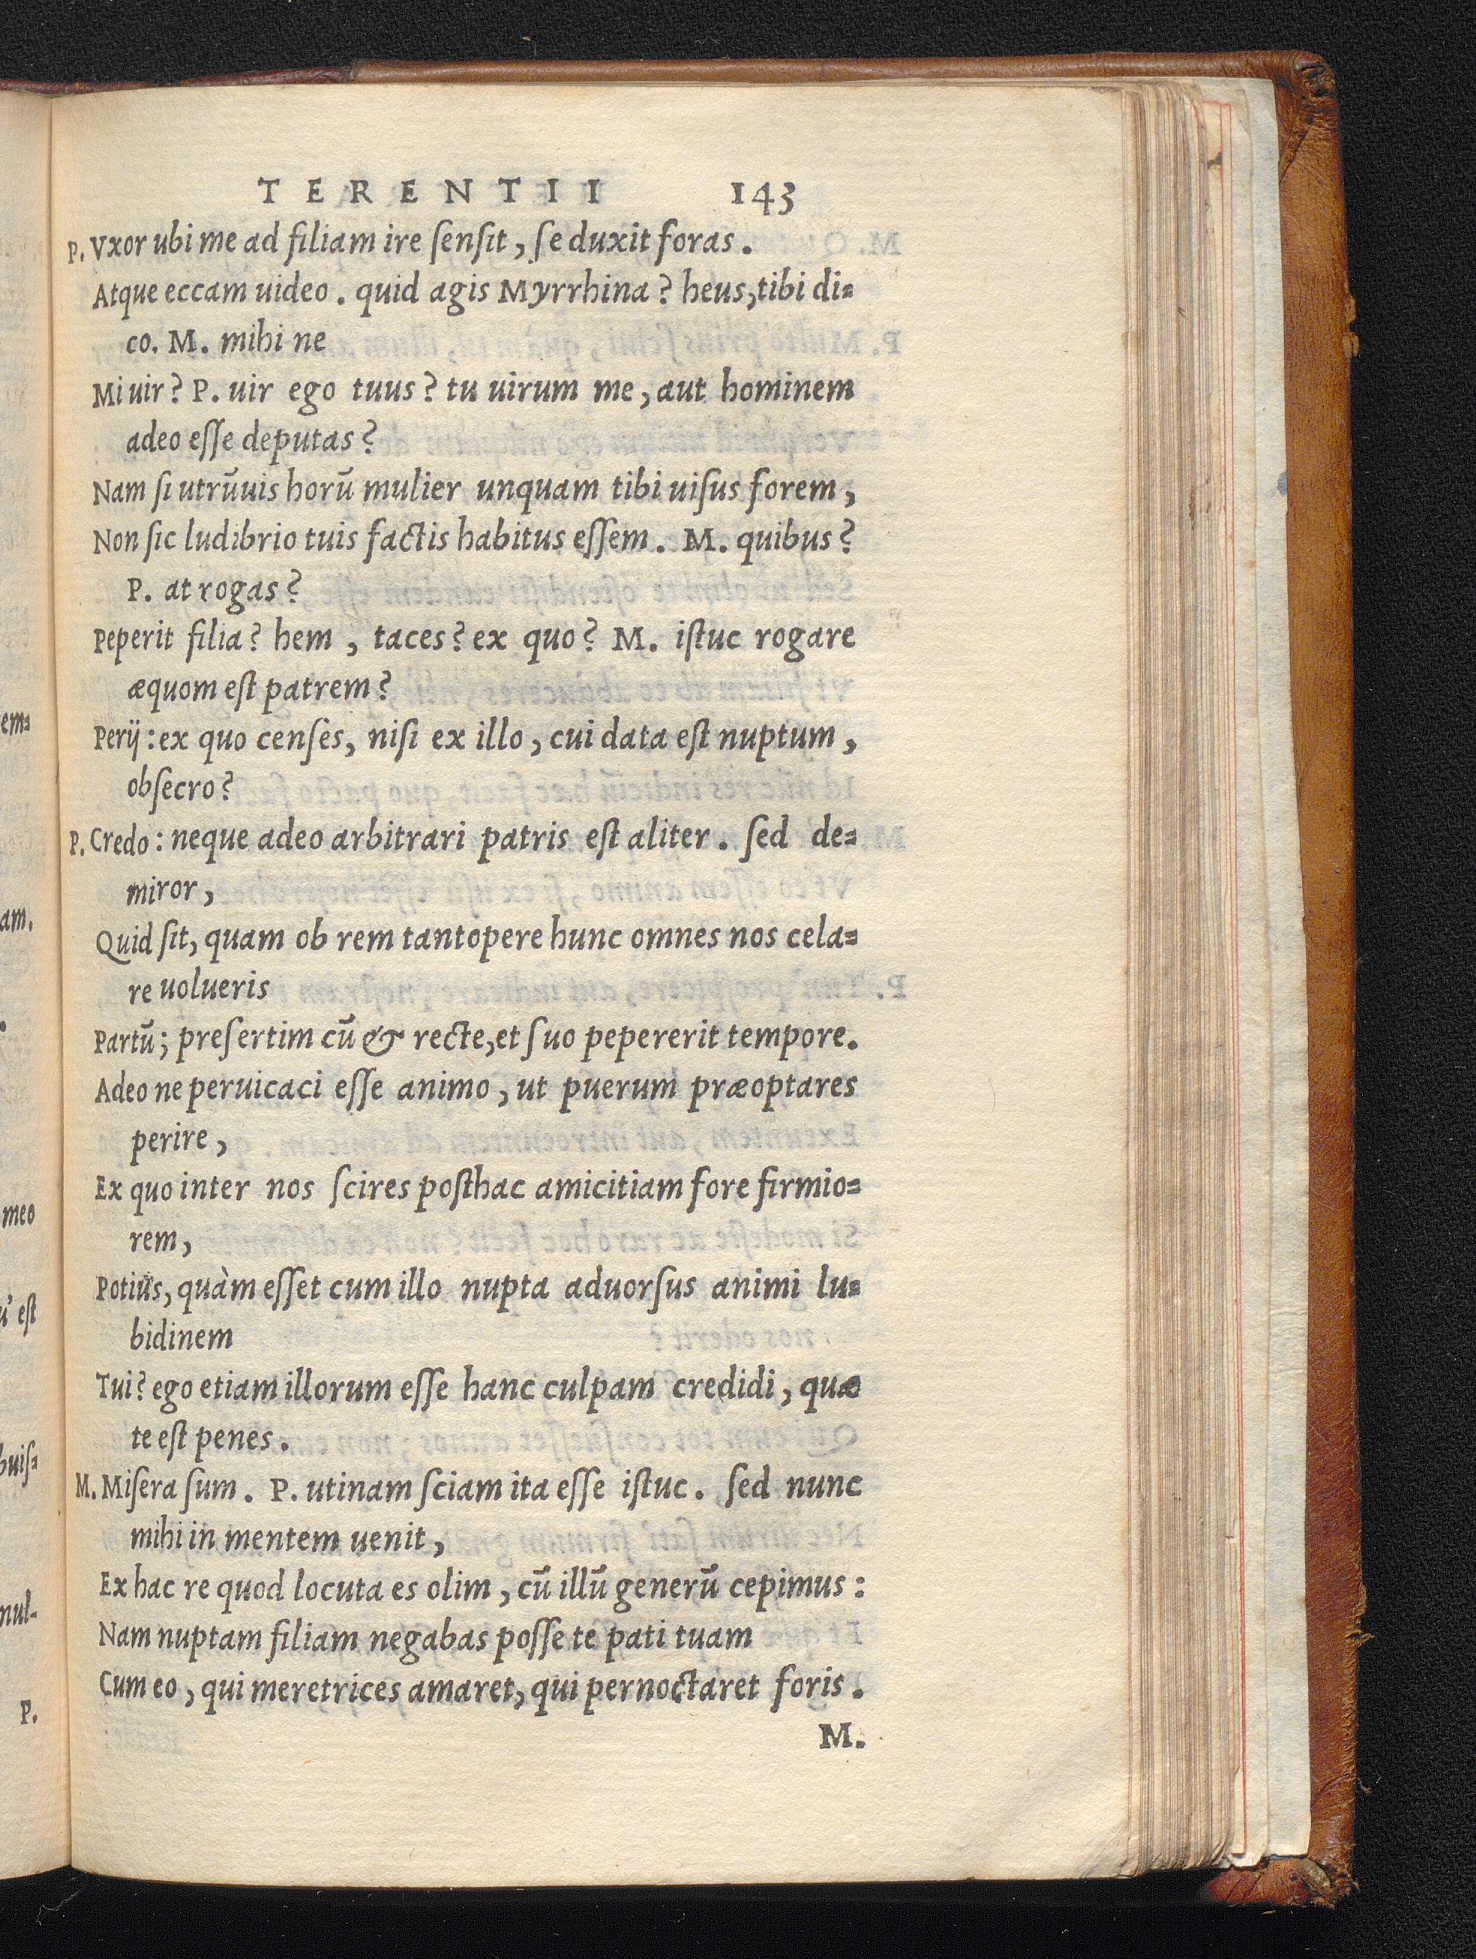 TERENTII 143
P. Vxor ubi me ad filiam ire ſenſit, ſe duxit foras.
Atque eccam uideo. quid agis Myrrhina? heus, tibi di=
co. M. mihi ne
Mi uir? P. uir ego tuus? tu uirum me, aut hominem
adeo eſſe deputas?
Nam ſi utrũuis horũ mulier unquam tibi uiſus forem,
Non ſic ludibrio tuis factis habitus eſſem. M. quibus?
P. at rogas?
Peperit filia? hem, taces? ex quo? M. iſtuc rogare
æquom eſt patrem?
Perij: ex quo cenſes, niſi ex illo, cui data eſt nuptum,
obſecro?
P. Credo: neque adeo arbitrari patris eſt aliter. ſed de=
miror,
Quid ſit, quam ob rem tantopere hunc omnes nos cela=
re uolueris
Partũ; preſertim cũ & recte, et ſuo pepererit tempore.
Adeo ne peruicaci eſſe animo, ut puerum præoptares
perire,
Ex quo inter nos ſcires poſthac amicitiam fore firmio=
rem,
Potius, quàm eſſet cum illo nupta aduorſus animi lu=
bidinem
Tui? ego etiam illorum eſſe hanc culpam credidi, quæ
te eſt penes.
M. Miſera ſum. P. utinam ſciam ita eſſe iſtuc. ſed nunc
mihi in mentem uenit,
Ex hac re quod locuta es olim, cũ illũ generũ cepimus:
Nam nuptam filiam negabas poſſe te pati tuam
Cum eo, qui meretrices amaret, qui pernoctaret foris.
M.
em=
am.
meo
eſt
buiſ=
nul-
P.